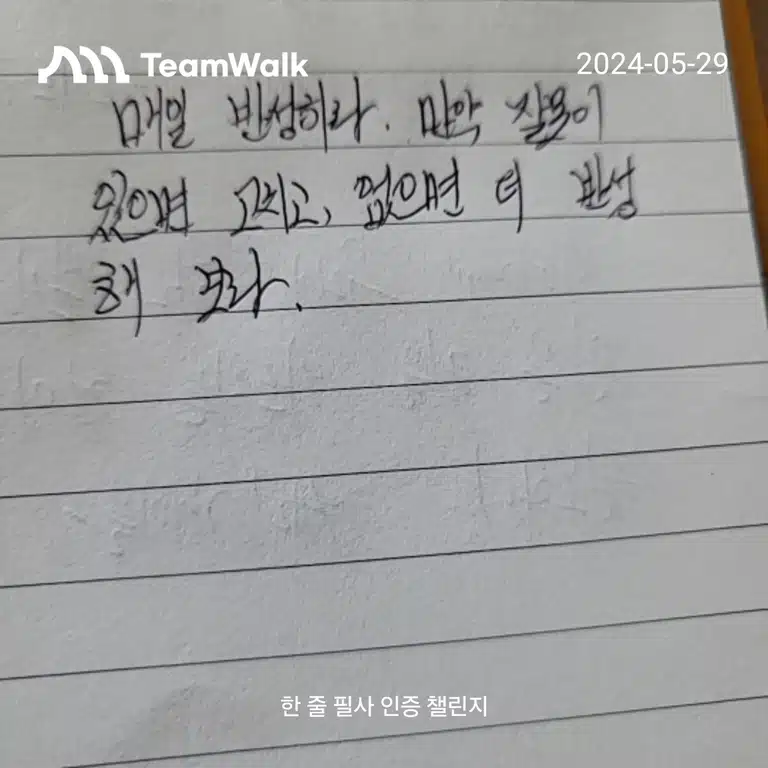 TeamWalk
2024-05-29
매일 반성하라. 만약 잘못이
있으면 고치고, 없으면 더 반성
해 보라.
한 줄 필사 인증 챌린지